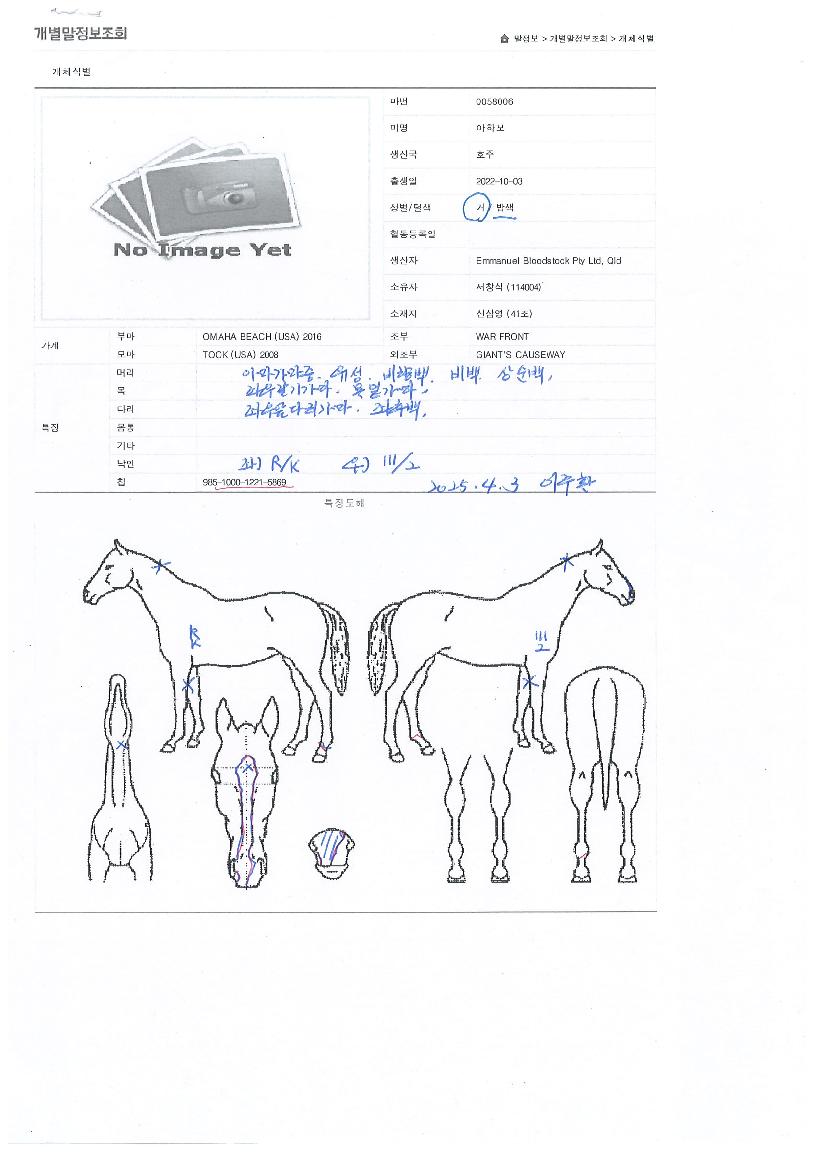 개별말정보조회
말정보 > 개별말정보조회 > 개체식별
개체식별
No Image Yet
마번 0058006
마명 아하보
생산국 호주
출생일 2022-10-03
성별/털색 거 밤색
혈통등록일
생산자 Emmanuel Bloodstock Pty Ltd, Qld
소유자 서창식 (114004)
소재지 신삼영 (41조)
가계 부마 OMAHA BEACH (USA) 2016 조부 WAR FRONT
모마 TOCK (USA) 2008 외조부 GIANT'S CAUSEWAY
특징
머리 이마가마중. 비백. 상순백,
목
다리 좌후백,
몸통
기타
낙인 좌) R/K 우) III/2
칩 985-1000-1221-5869
2025.4.3 이주환
특징도해
R
K
III
2